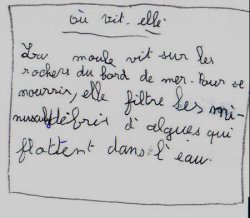 où vit-elle.
La moule vit sur les
rochers du bord de mer. Pour se
nourrir, elle filtre les mi-
nuscules débris d'algues qui
flottent dans l'eau.